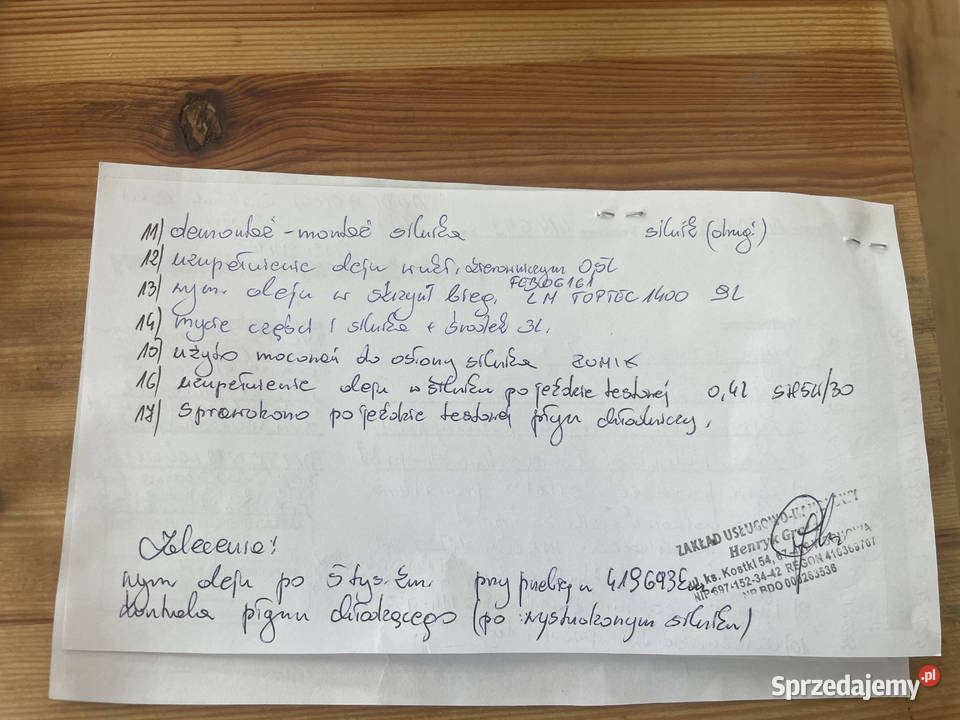 11) demontaż - montaż silnika silnik (drugi)
12) uzupełnienie oleju w ukł. kierowniczym 0,5L
13) wym. oleju w skrzyni bieg. FEB106161 LM TOPTEC 1400 9L
14) mycie części i silnika + środek 3L.
15) użyto mocowań do osłony silnika ROMIX
16) uzupełnienie oleju w silniku po jeździe testowej 0,4L 5W/30
17) Sprawdzono po jeździe testowej płyn chłodniczy.
Zalecenia:
wym oleju po 5 tys. km. przy przebiegu 419693km
kontrola płynu chłodzącego (po wystudzonym silniku)
ZAKŁAD USŁUGOWO-HANDLOWY
Henryk
ul. ks. Kostki 54,
NIP 697-152-34-42 REGON 410369767
NR BDO 000263536
Sprzedajemy.pl